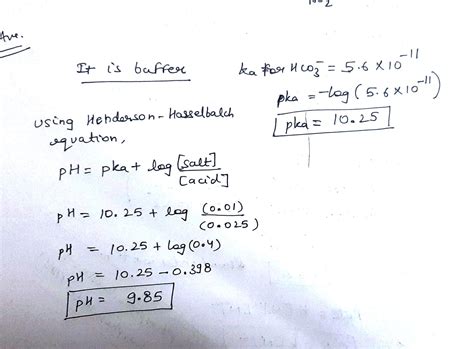 Ave.
It is buffer
ka for HCO₃⁻ = 5.6 × 10⁻¹¹
pka = -log (5.6 × 10⁻¹¹)
pka = 10.25
using Henderson-Hasselbalch
equation,
pH = pka + log [salt]/[acid]
pH = 10.25 + log (0.01)/(0.025)
pH = 10.25 + log(0.4)
pH = 10.25 - 0.398
pH = 9.85